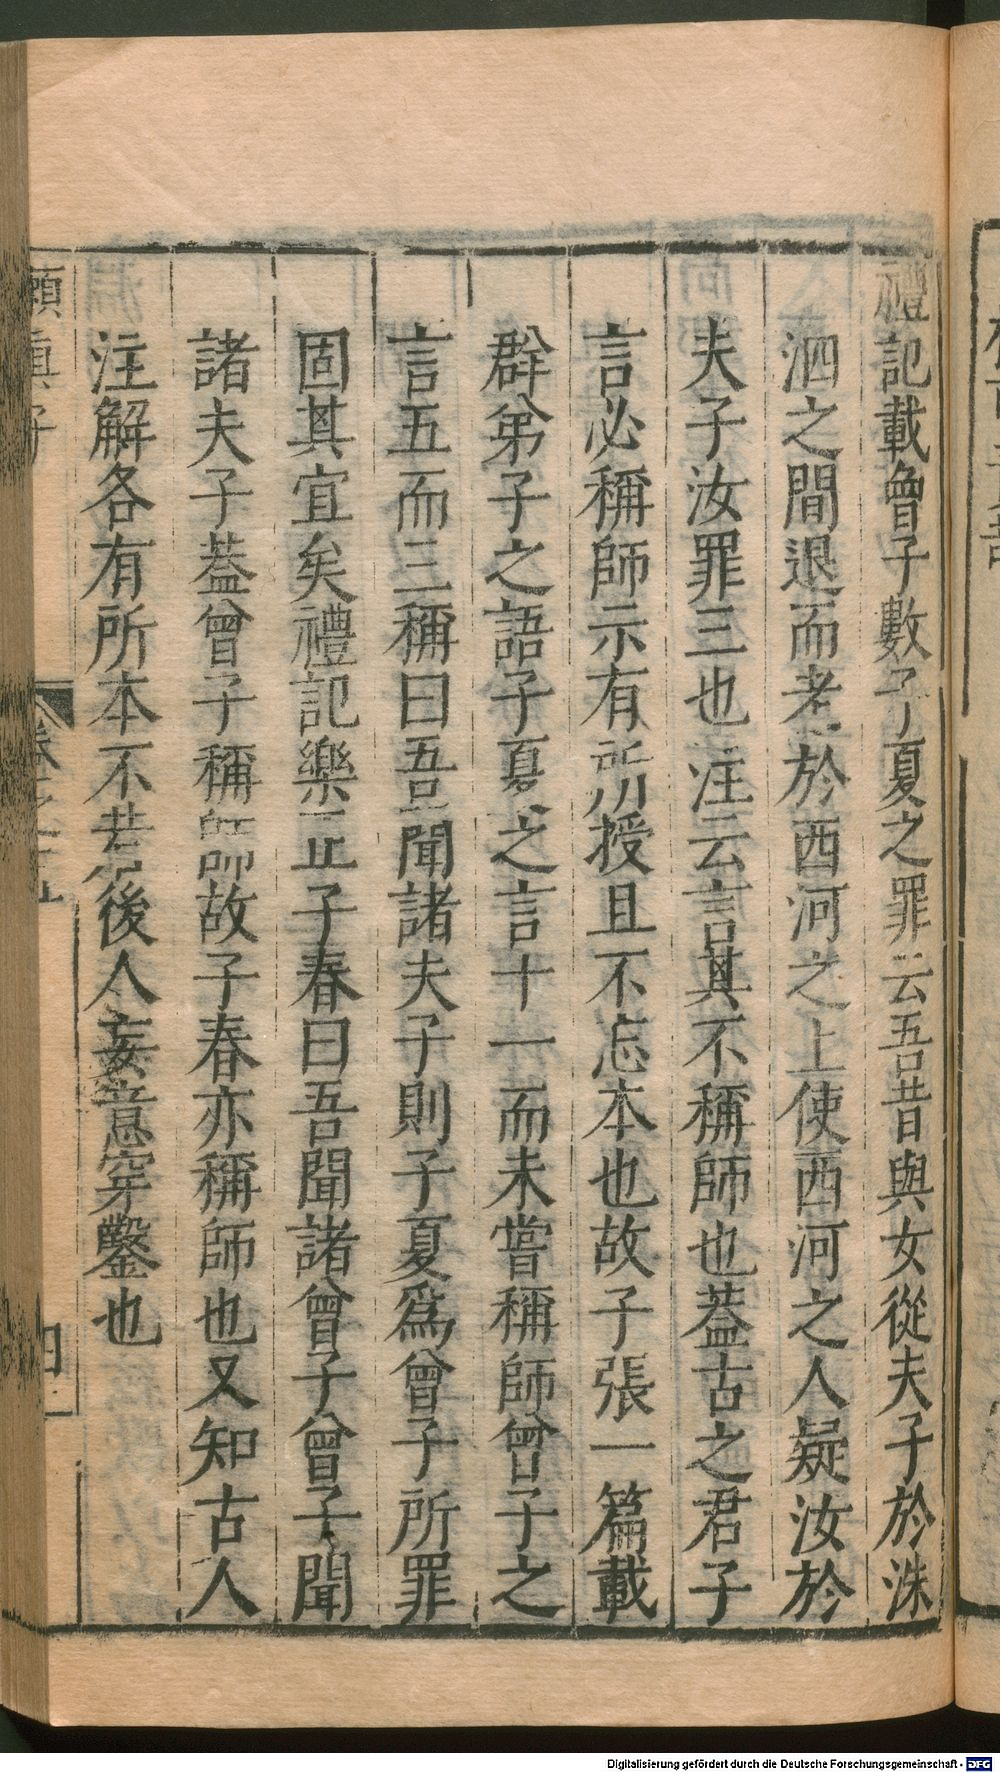 禮記載曾子數子夏之罪云吾昔與女從夫子於洙
泗之間退而老於西河之上使西河之人疑汝於
夫子汝罪三也注云言其不稱師也葢古之君子
言必稱師示有所授且不忘本也故子張一篇載
群弟子之語子夏之言十一而未嘗稱師曾子之
言五而三稱曰吾聞諸夫子則子夏爲曾子所罪
固其宜矣禮記樂正子春曰吾聞諸曾子曾子聞
諸夫子葢曾子稱師故子春亦稱師也又知古人
注解各有所本不若後人妄意穿鑿也
嬾真子
卷之三
四
Digitalisierung gefördert durch die Deutsche Forschungsgemeinschaft - DFG